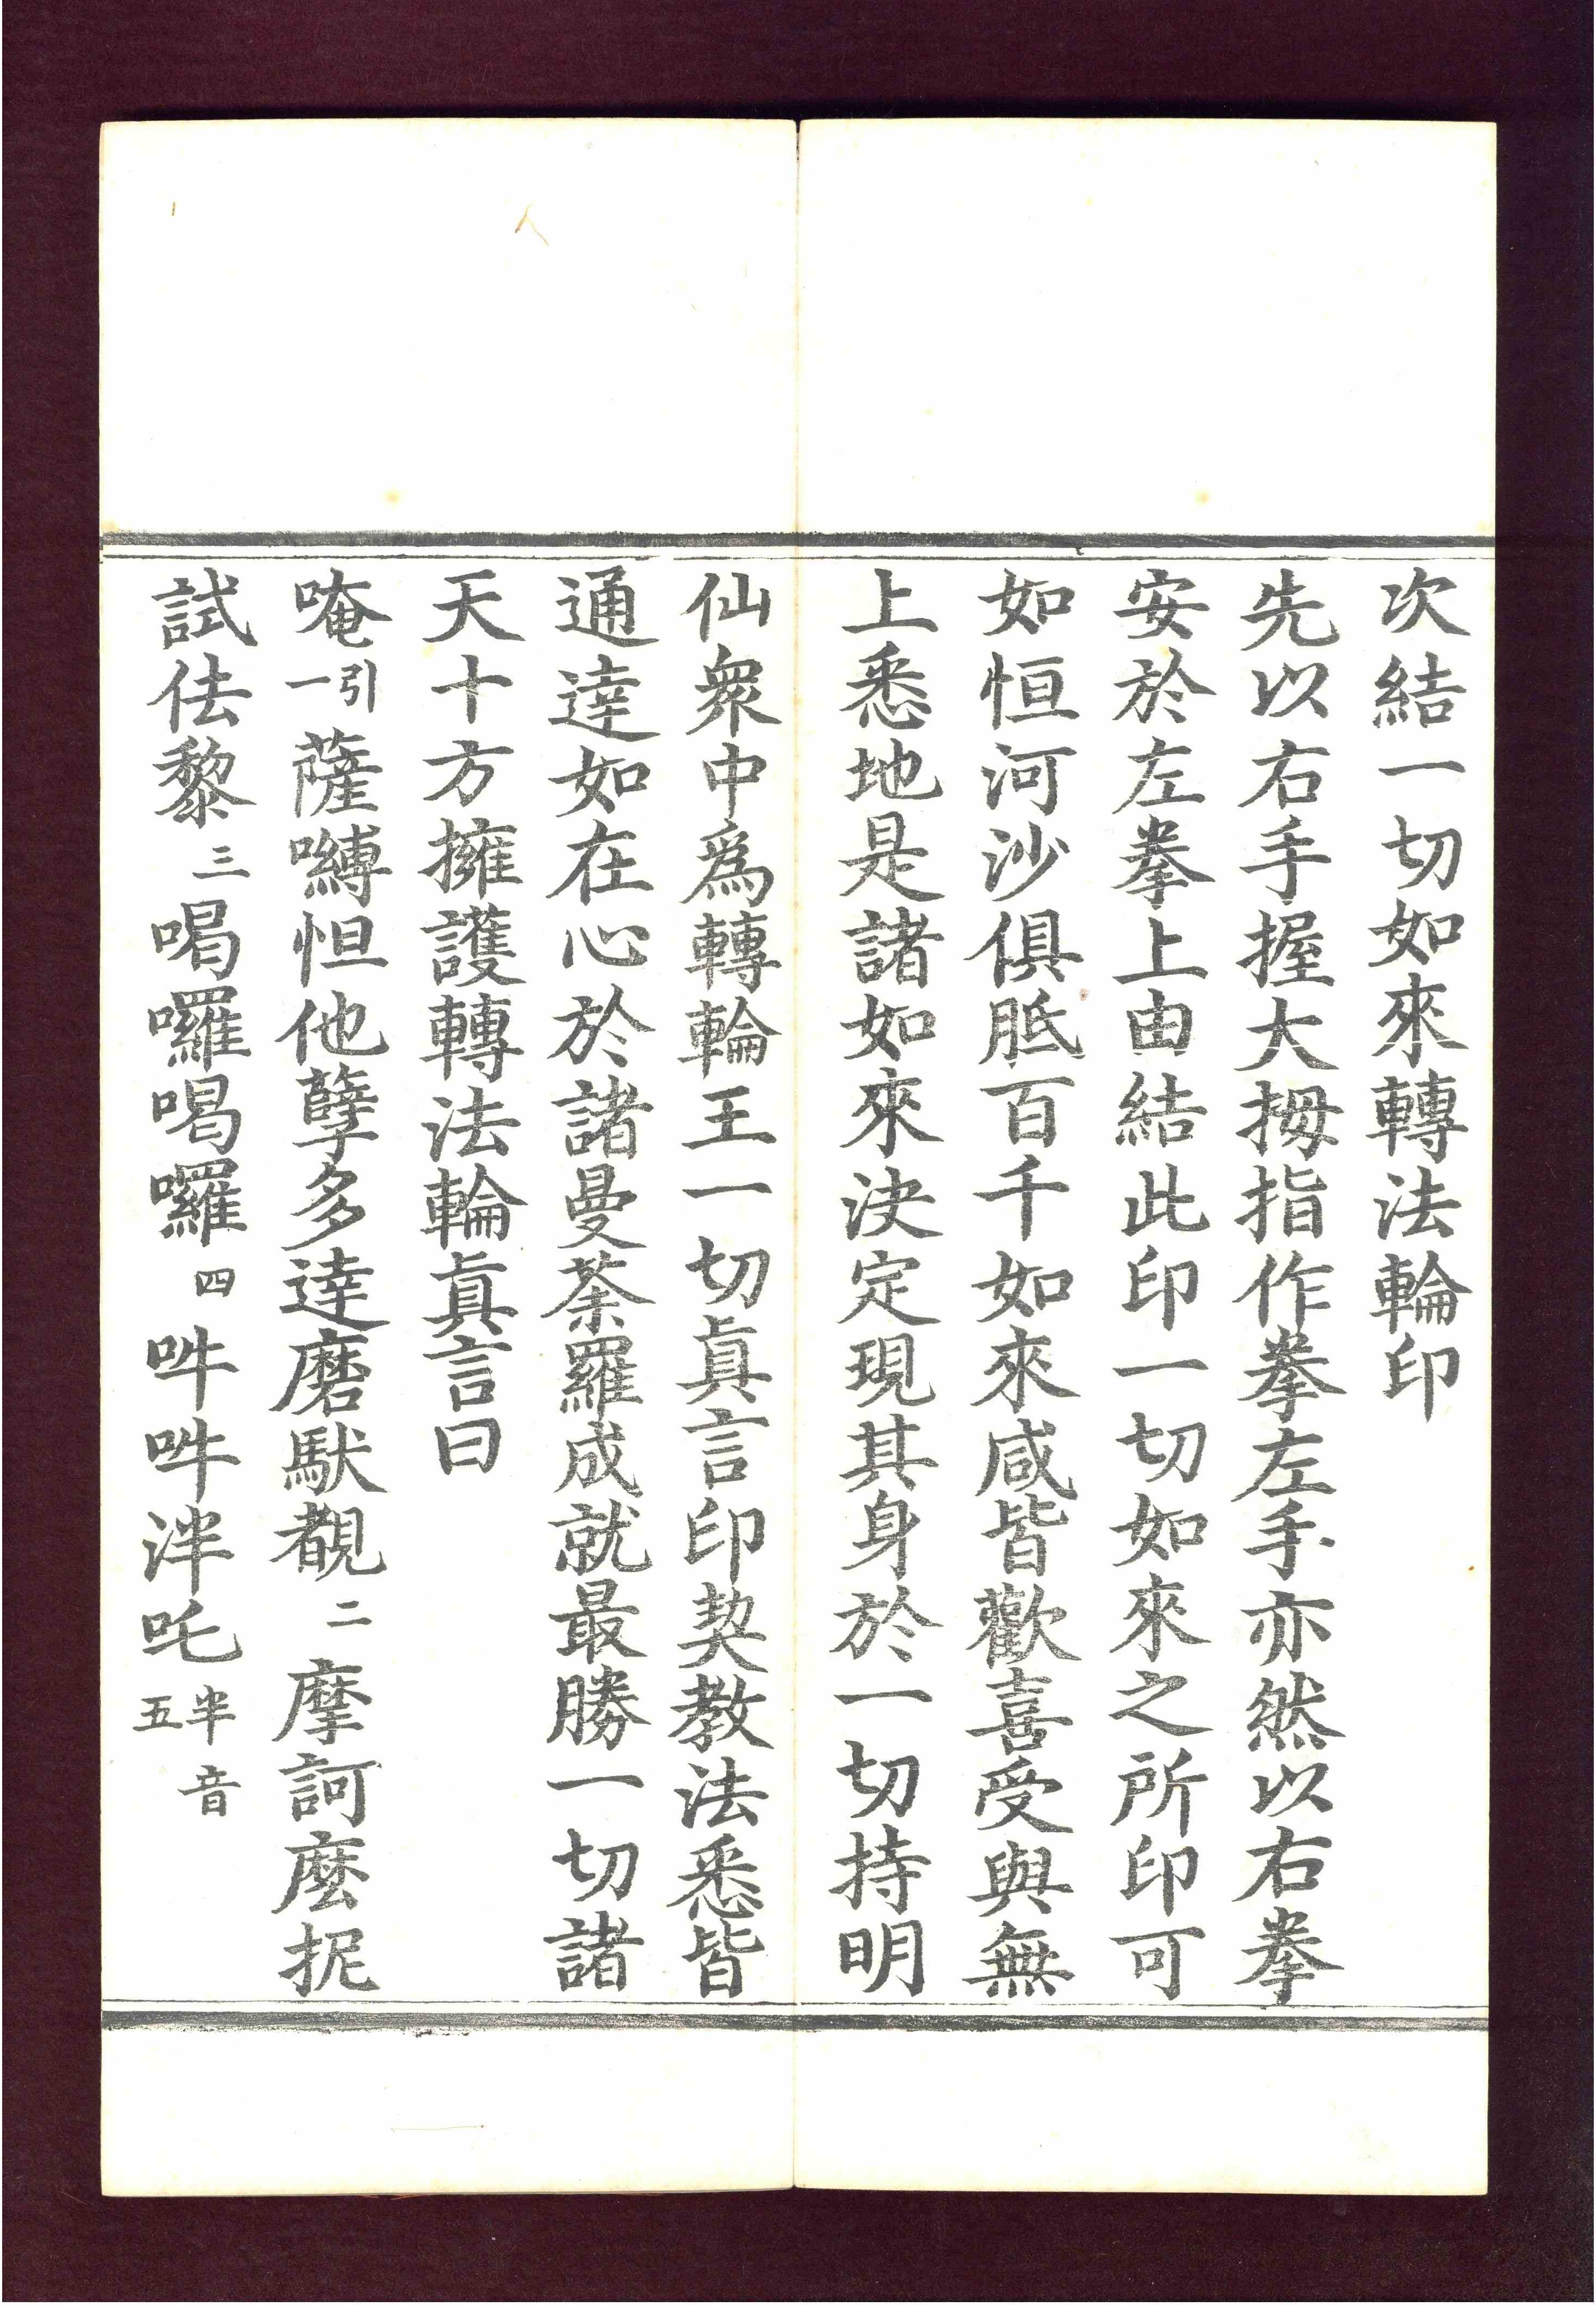 次結一切如來轉法輪印
先以右手握大拇指作拳左手亦然以右拳
安於左拳上由結此印一切如來之所印可
如恒河沙俱胝百千如來咸皆歡喜受與無
上悉地是諸如來決定現其身於一切持明
仙衆中爲轉輪王一切眞言印契教法悉皆
通達如在心於諸曼荼羅成就最勝一切諸
天十方擁護轉法輪眞言曰
唵引一薩嚩怛他孽多達磨馱覩二摩訶麼抳
試佉黎三喝囉喝囉四吽吽泮吒半音五